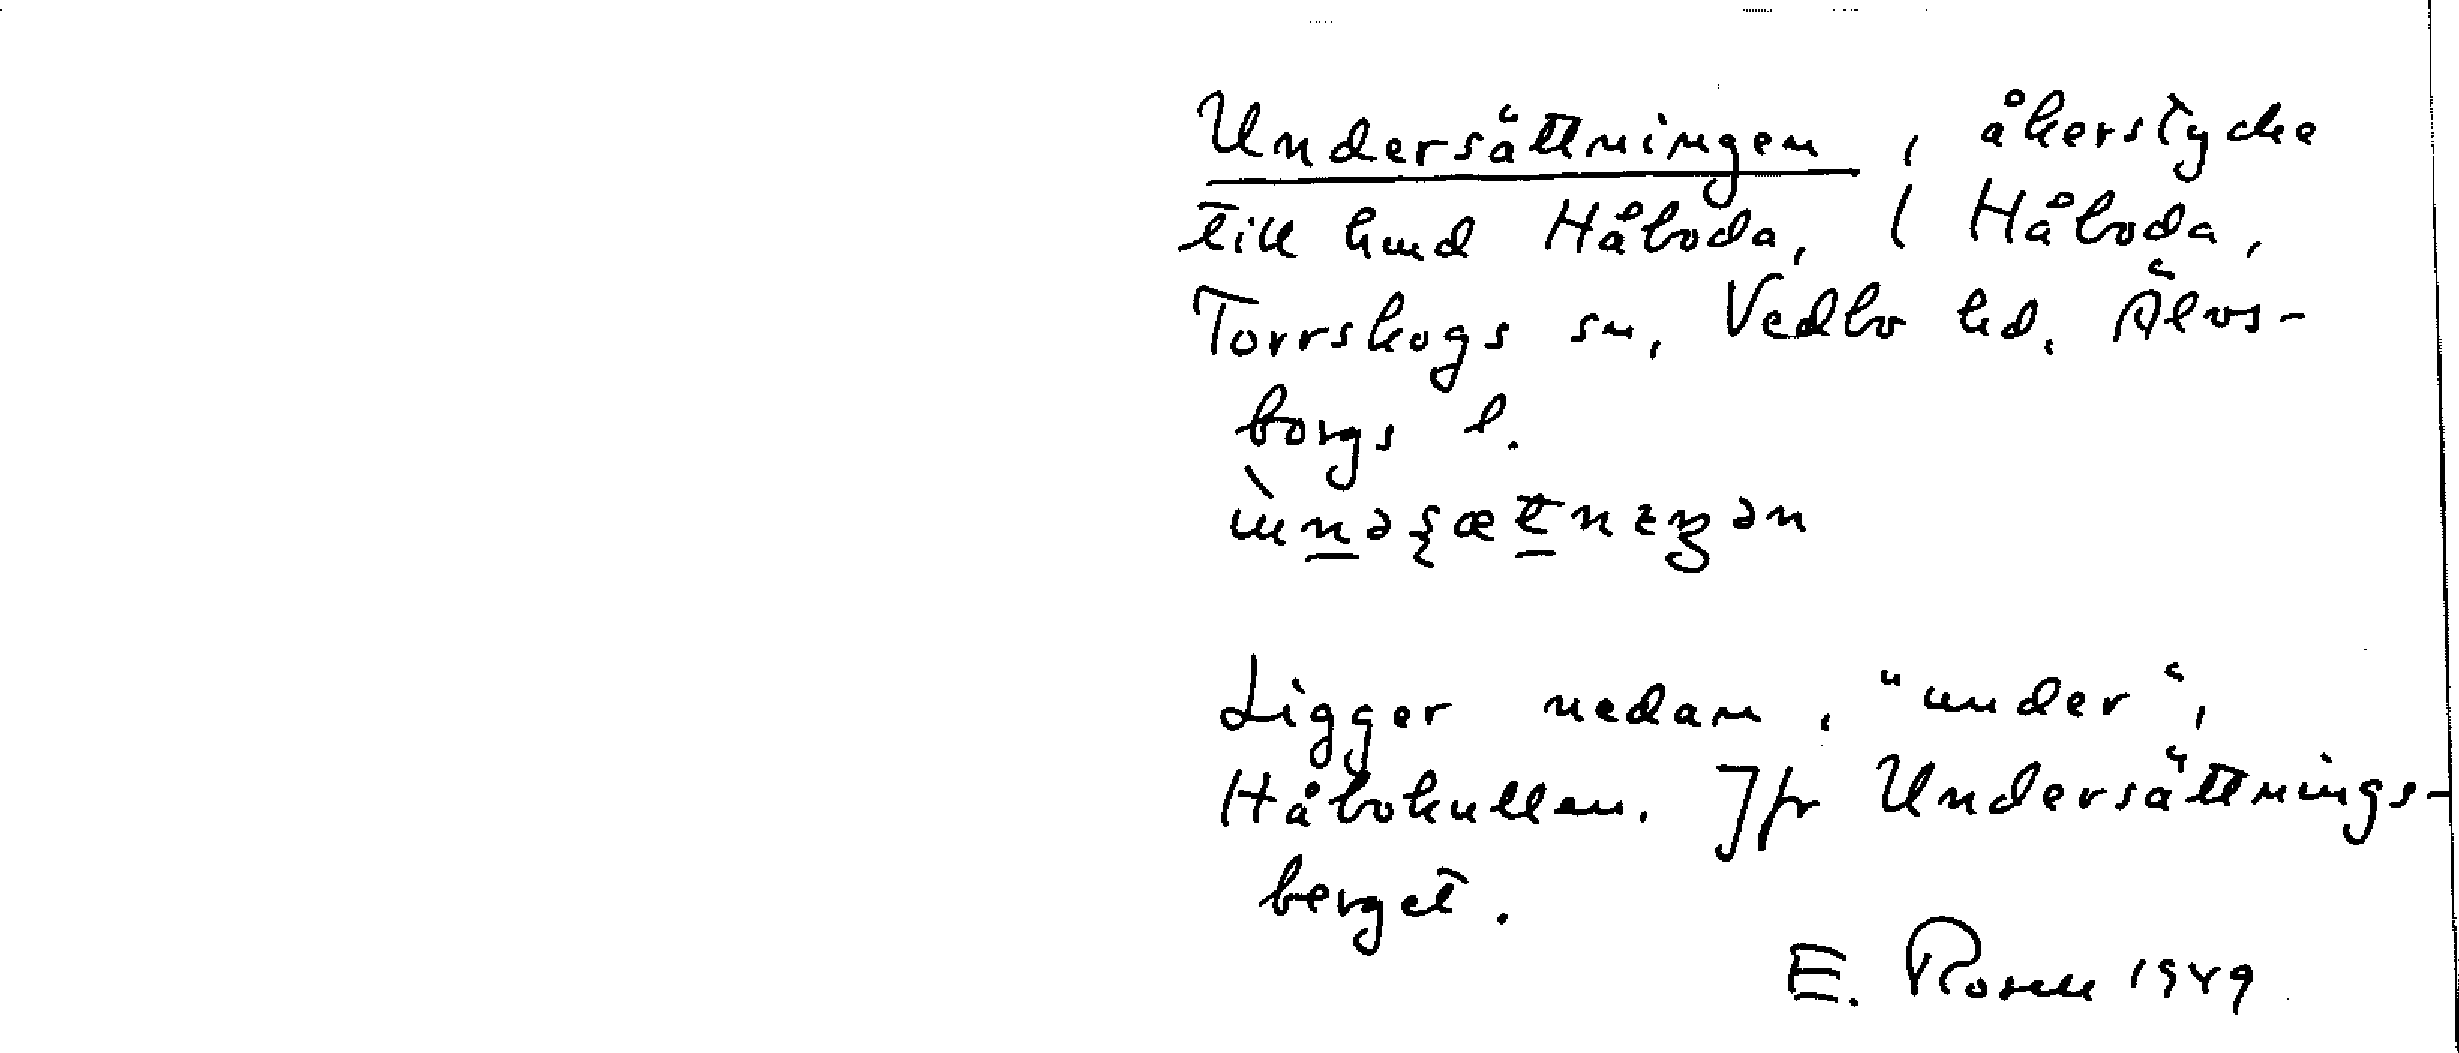 Undersättningen, åkerstycke
till hmd Håboda, 1 Håboda,
Torrskogs sn, Vedbo hd. Älvs-
borgs l.
Ligger nedan, "under",
Håbokullen. Jfr Undersättnings-
berget.
E. Rosell 1949